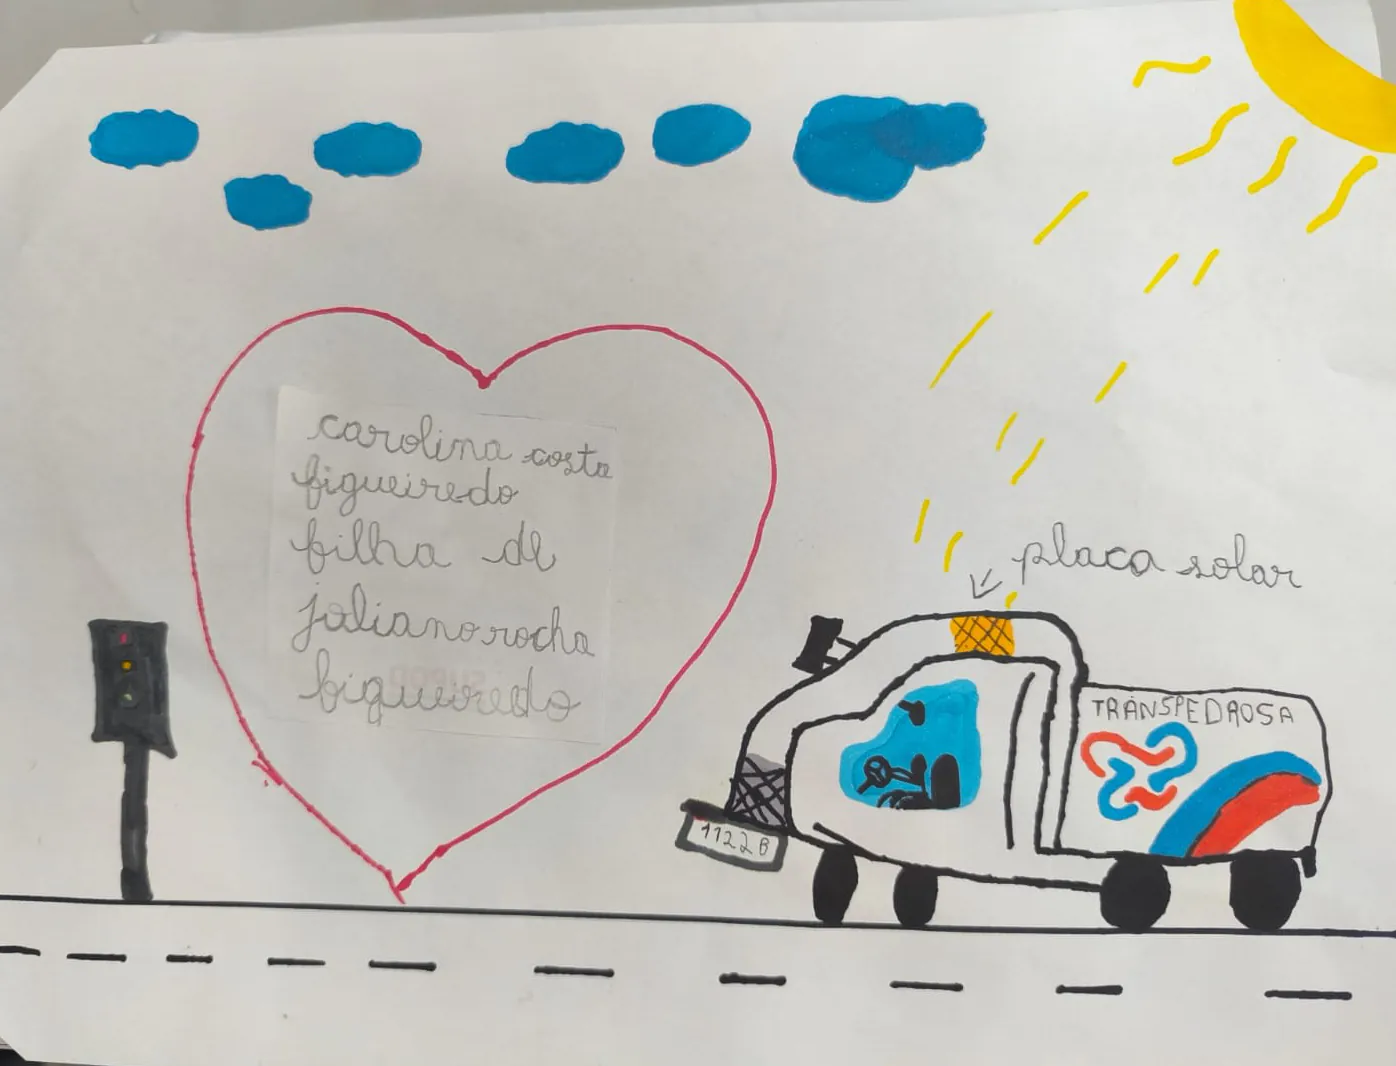 carolina costa
figueiredo
filha de
juliano rocha
figueiredo
placa solar
TRANSPEDROSA
1122B